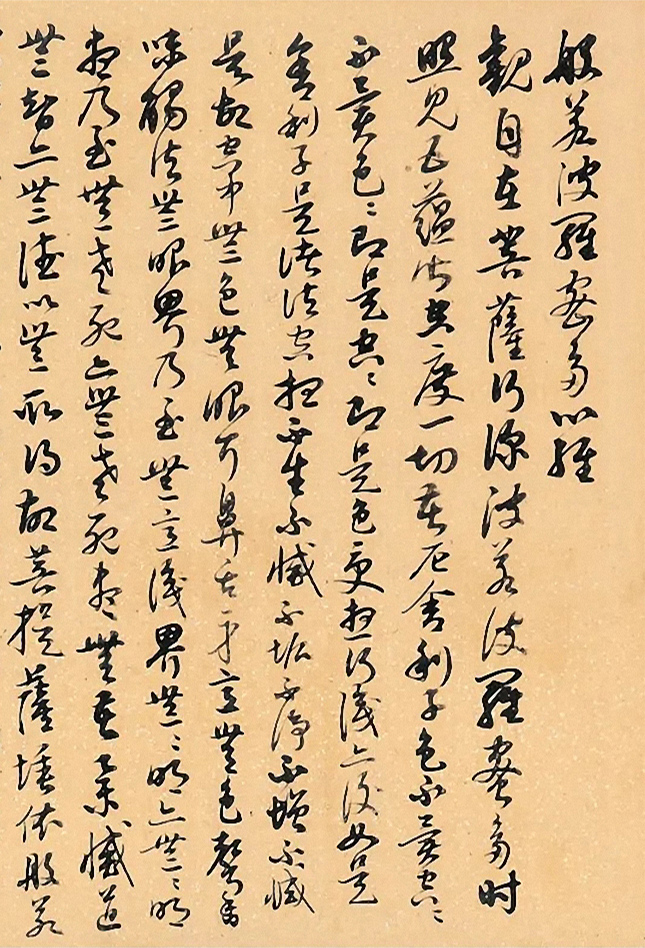 般若波羅蜜多心經
觀自在菩薩行深波若波羅蜜多時
照見五蘊皆空度一切苦厄舍利子色不異空〻
不異色〻即是空〻即是色受想行識亦復如是
舍利子是諸法空相不生不滅不垢不淨不增不減
是故空中無色無眼耳鼻舌身意無色聲香
味觸法無眼界乃至無意識界無〻明亦無〻明
盡乃至無老死亦無老死盡無苦集滅道
無智亦無得以無所得故菩提薩埵依般若